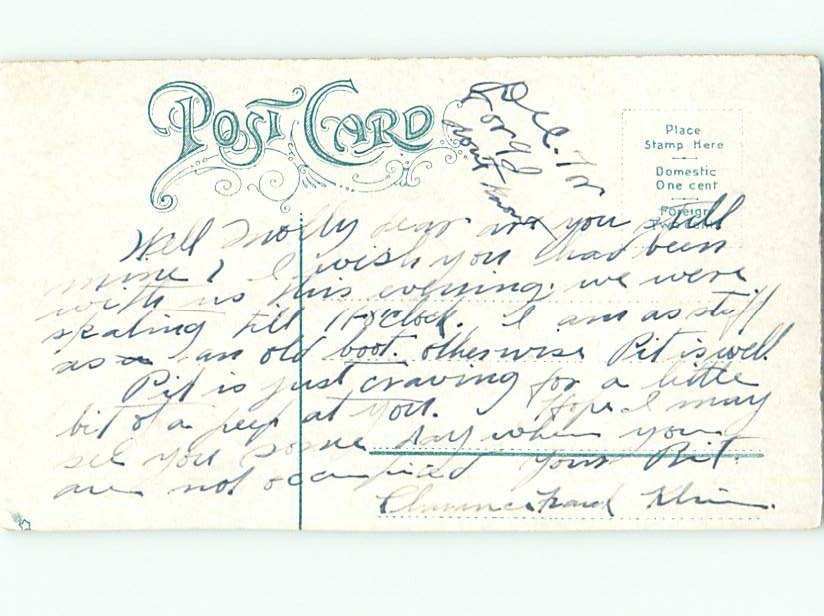 POST CARD
Dec.
Place
Stamp Here
Domestic
One cent
Foreign
Well Molly dear are you still
mine? I wish you had been
with us this evening. we were
skating till 11 o'clock. I am as stiff
as an old boot. otherwise Pit is well.
Pit is just craving for a little
bit of a peep at you. Hope I may
see you some day when you
are not occupied your Pit.
Clarence